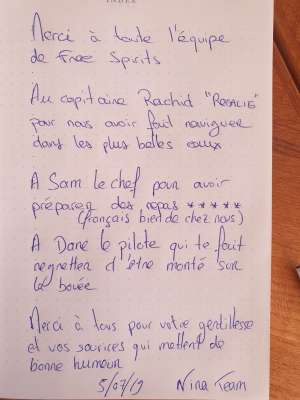 Merci à toute l'équipe
de Free Spirits
Au capitaine Rachid "
pour nous avoir fait naviguer
dans les plus belles eaux
A Sam le chef pour avoir
préparer des repas *****
(français bien de chez nous)
A Dane le pilote qui te fait
regretter d'être monté sur
la bouée
Merci à tous pour votre gentillesse
et vos sourires qui mettent de
bonne humour
5/07/19 Nina Team